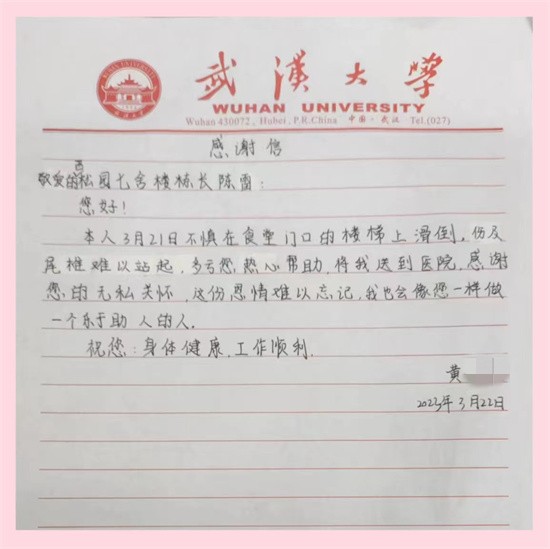 武漢大学
WUHAN UNIVERSITY
Wuhan 430072, Hubei, P.R.China 中国·武汉 Tel.(027)
感谢信
敬爱的桂园七舍楼栋长陈雷:
您好!
本人3月21日不慎在食堂门口的楼梯上滑倒,伤及
尾椎难以站起,多亏您热心帮助,将我送到医院,感谢
您的无私关怀,这份恩情难以忘记,我也会像您一样做
一个乐于助人的人.
祝您:身体健康,工作顺利.
黄
2023年3月22日